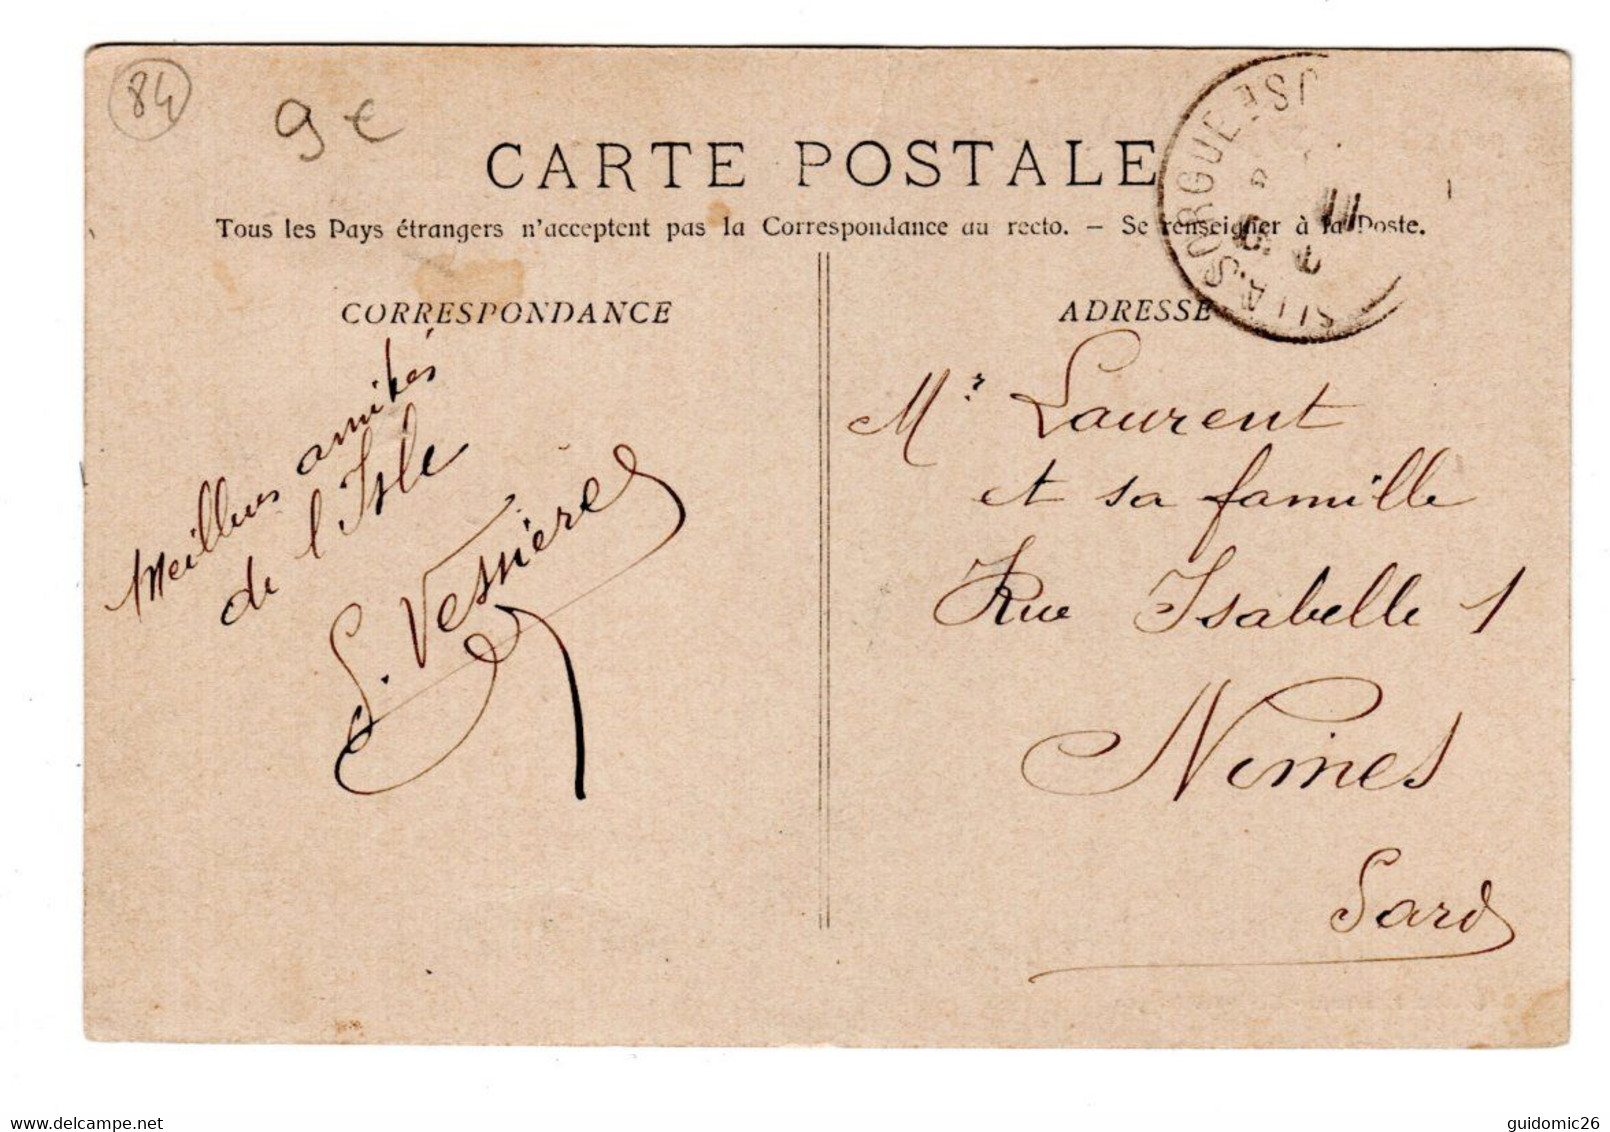 84
9 €
CARTE POSTALE
Tous les Pays étrangers n'acceptent pas la Correspondance au recto. — Se renseigner à la Poste.
CORRESPONDANCE
ADRESSE
Meilleures amitiés
de l'Isle
Mr Laurent
et sa famille
Rue Isabelle 1
Nimes
Gard
delcampe.net
guidomic26